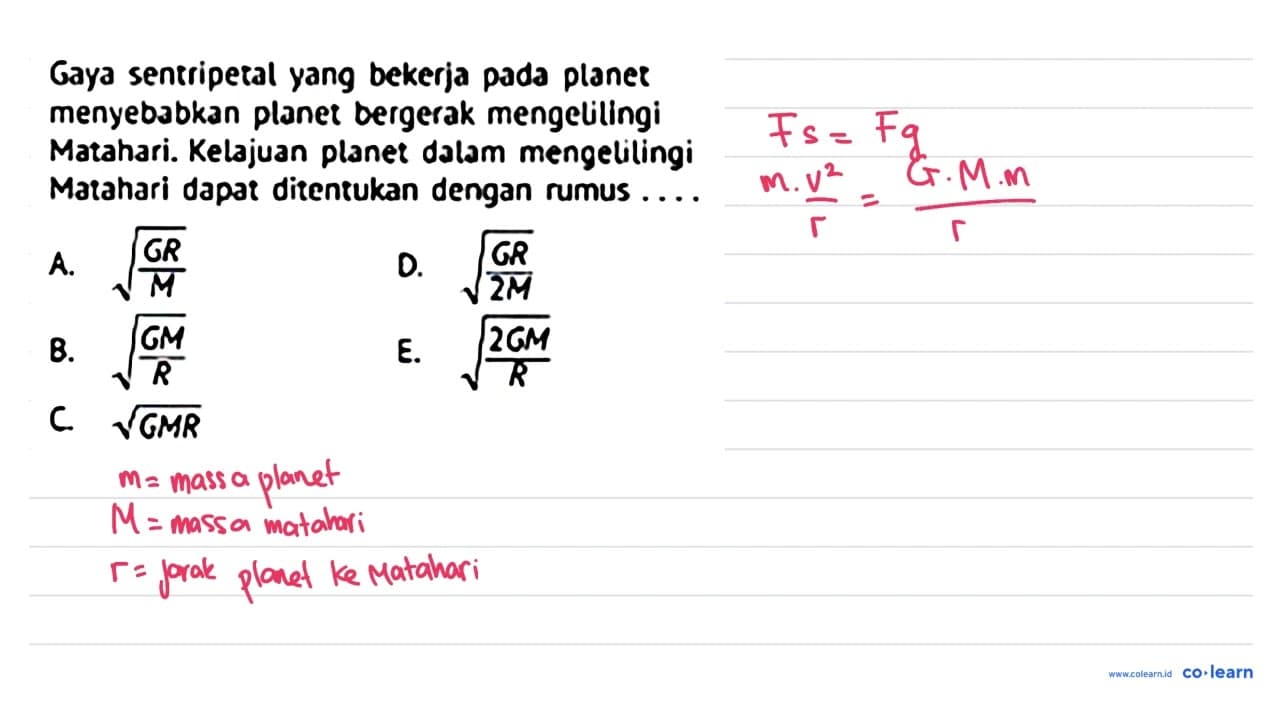 Gaya sentripetal yang bekerja pada planet
menyebabkan planet bergerak mengelilingi
Matahari. Kelajuan planet dalam mengelilingi
Matahari dapat ditentukan dengan rumus . . . .
A. √(GR/M)
D. √(GR/2M)
B. √(GM/R)
E. √(2GM/R)
C. √GMR
m = massa planet
M = massa matahari
r = jarak planet ke Matahari
Fs = Fg
m . v²/r = G . M . m/r
www.colearn.id co·learn